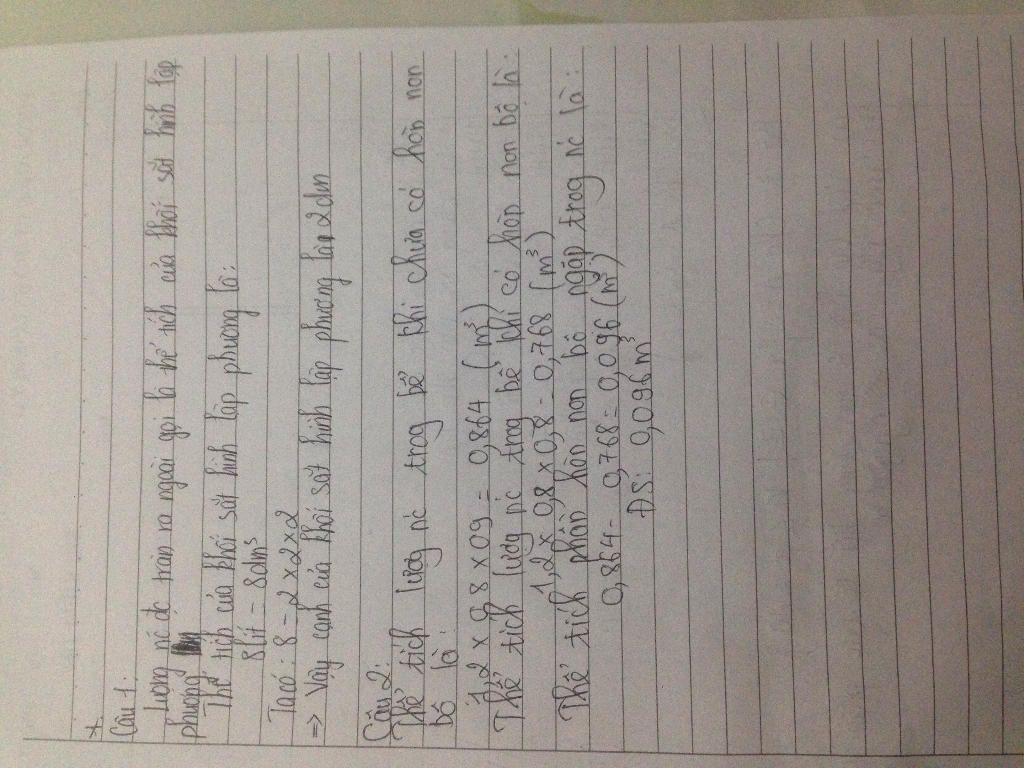 *
Câu 1:
Lượng nước đc tràn ra ngoài gọi là thể tích của khối sắt hình lập
phương
Thể tích của khối sắt hình lập phương là:
8 lít = 8dm³
Ta có: 8 = 2 x 2 x 2
=> Vậy cạnh của khối sắt hình lập phương là 2 dm
Câu 2:
Thể tích lượng nc trog bể khi chưa có hòn non
bộ là:
1,2 x 0,8 x 0,9 = 0,864 (m³)
Thể tích lượng nc trog bể khi có hòn non bộ là:
1,2 x 0,8 x 0,8 = 0,768 (m³)
Thể tích phần hòn non bộ ngập trog nc là:
0,864 - 0,768 = 0,096 (m³)
ĐS: 0,096 m³